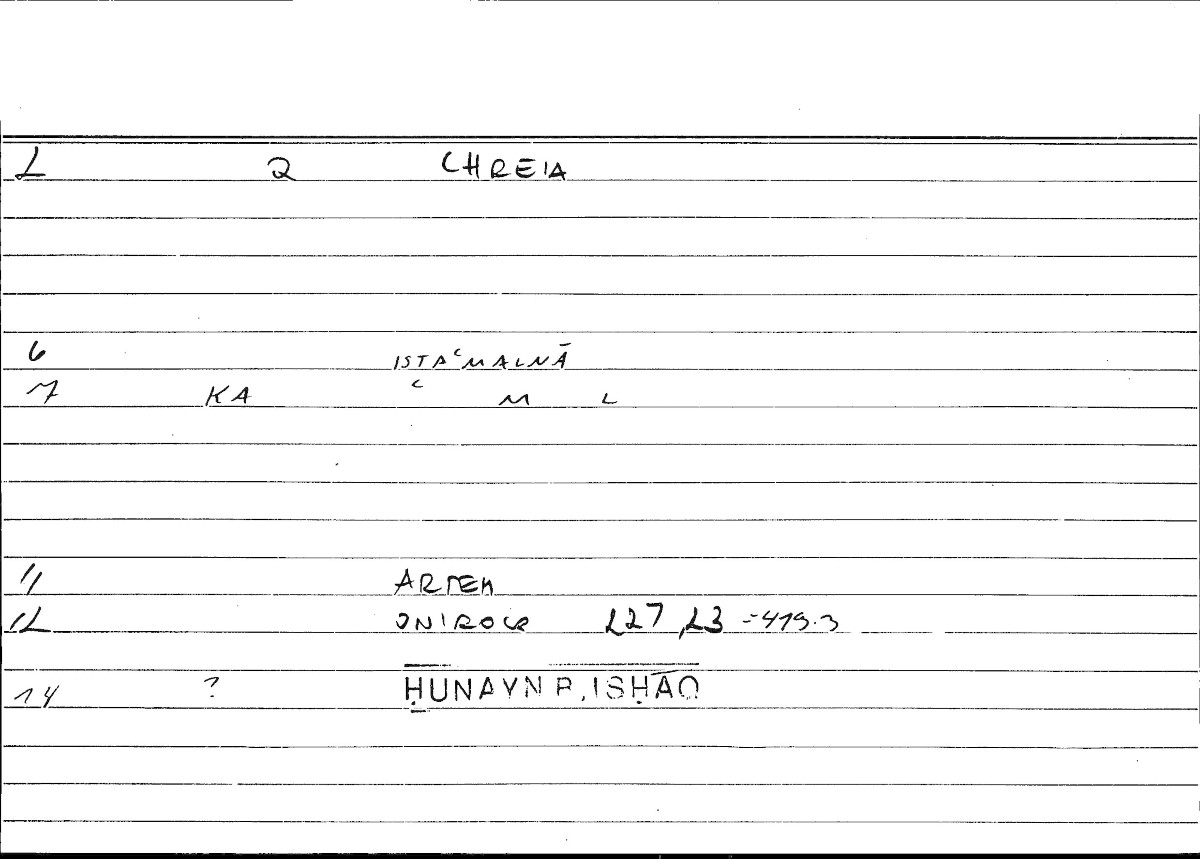 2 2 CHREIA
6 ISTAʿMALNĀ
7 KA ʿ M L
11 ARTEM
12 ONIROCR 227,23 =419.3
14 ? ḤUNAYN B. ISḤĀQ